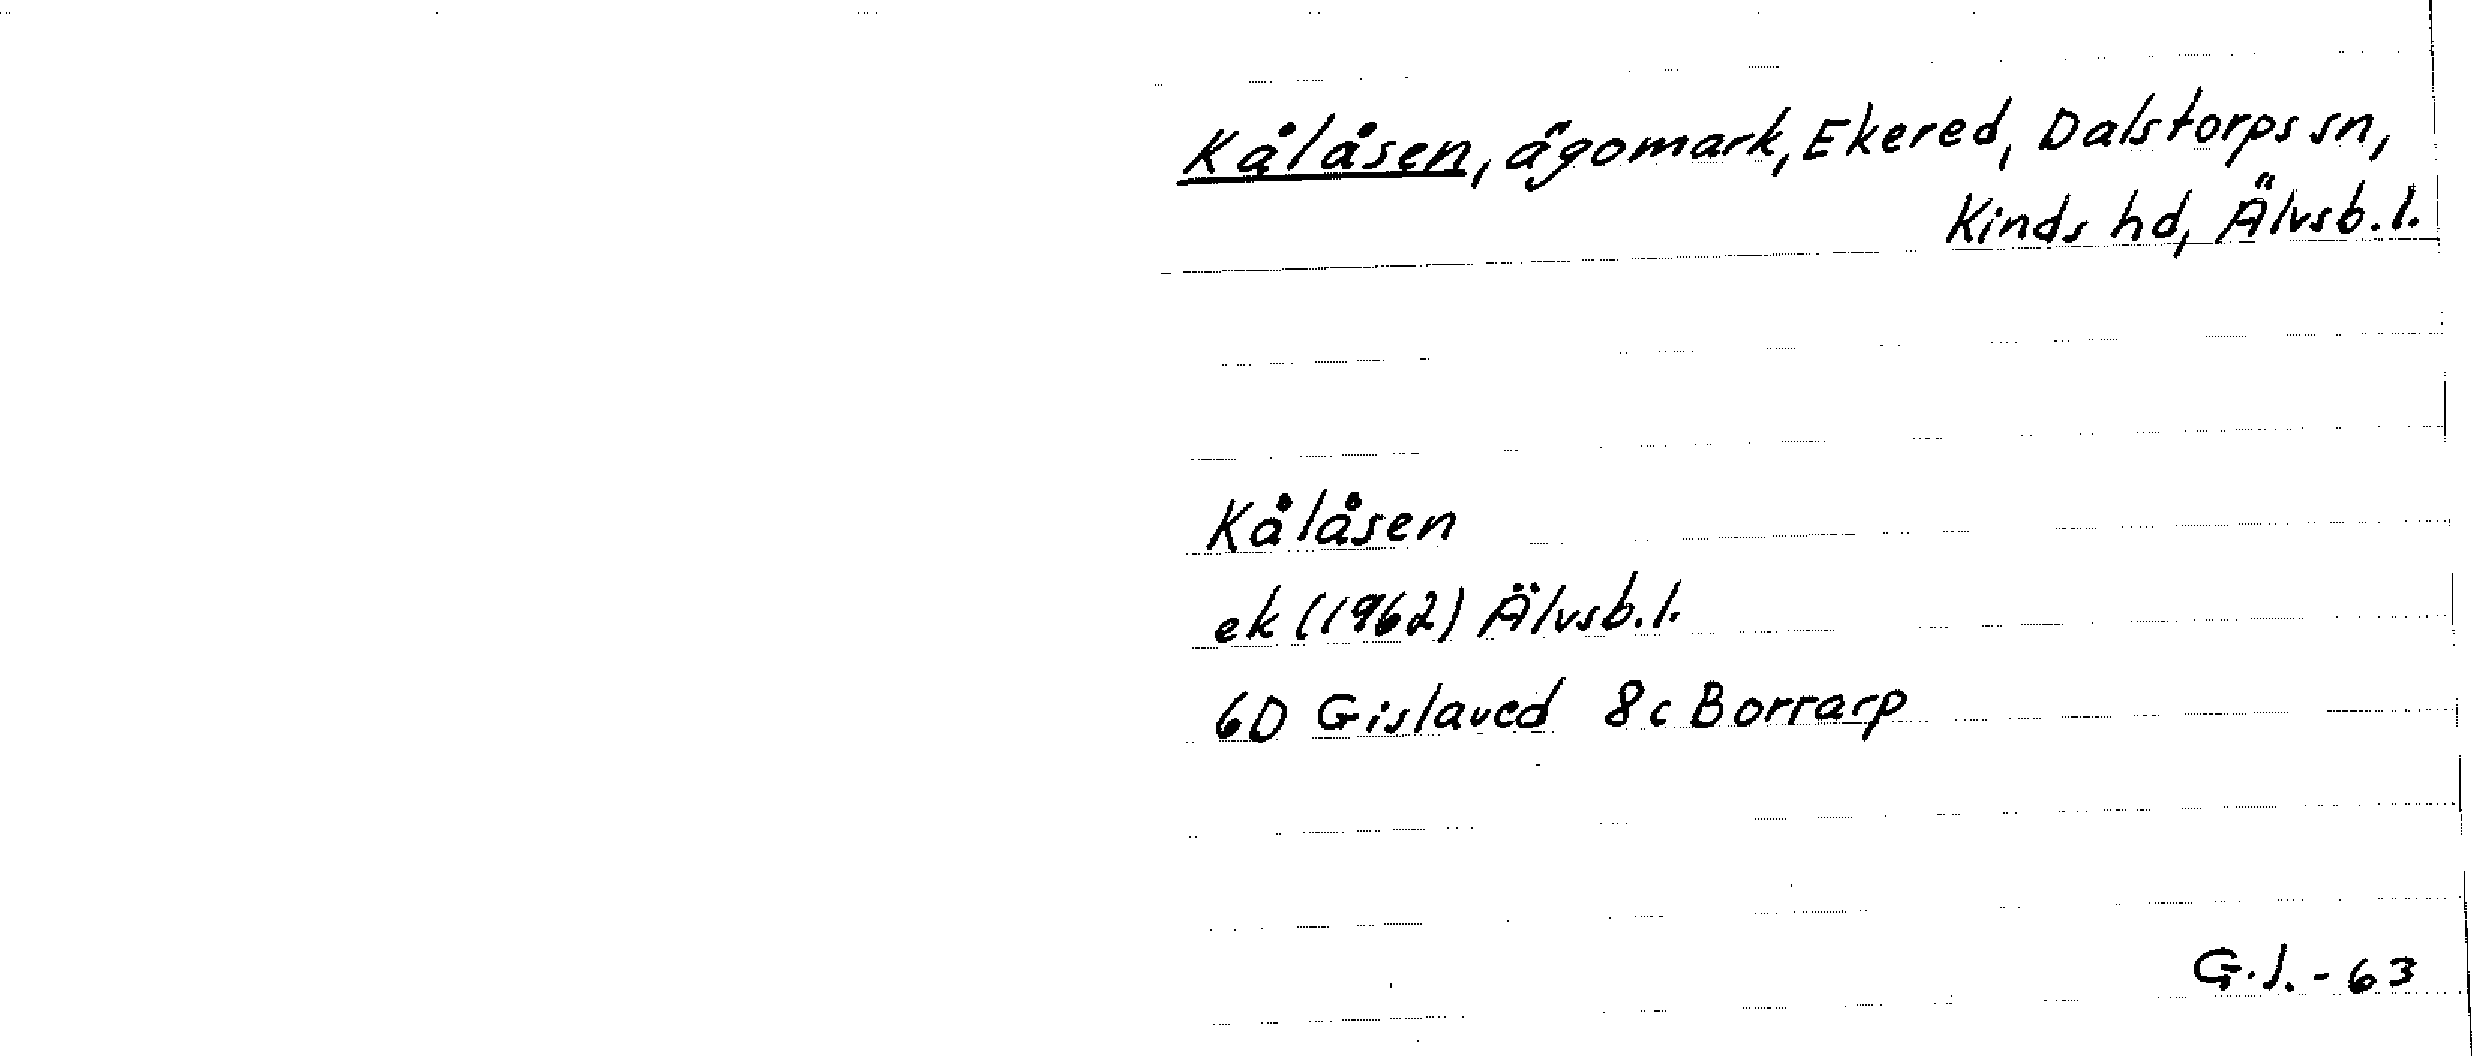 Kålåsen, ägomark, Ekered, Dalstorps sn,
Kinds hd, Älvsb. l.
Kålåsen
ek (1962) Älvsb. l.
6D Gislaved 8c Borrarp
G.J. - 63